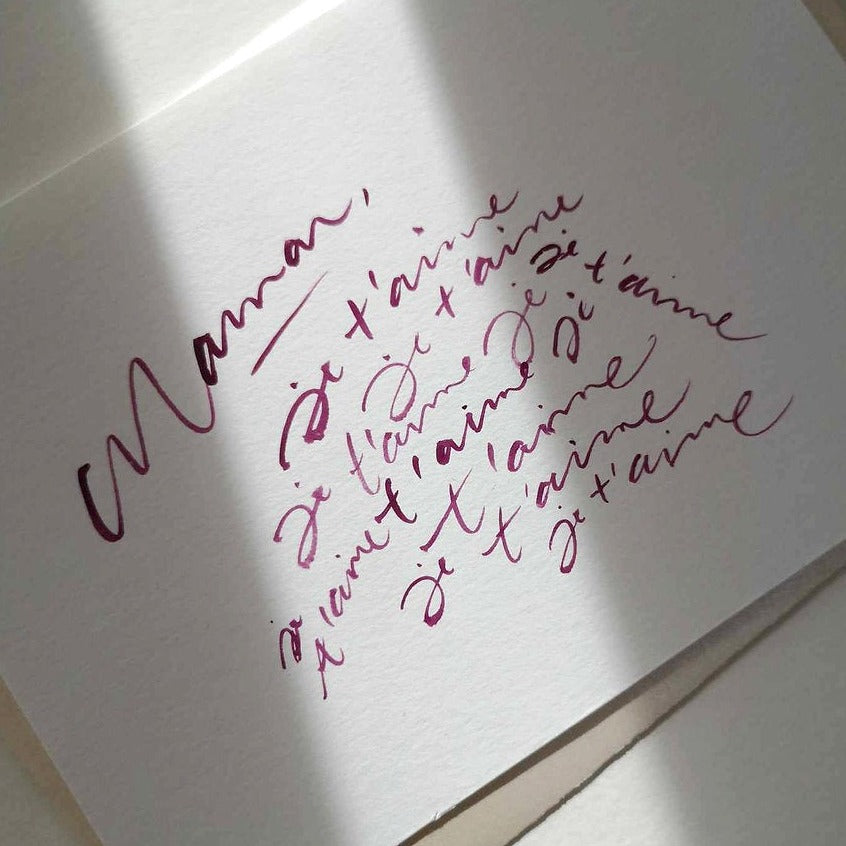 Maman,
je t'aime
je t'aime
je t'aime
je t'aime
je t'aime
je t'aime
je t'aime
je t'aime
je t'aime